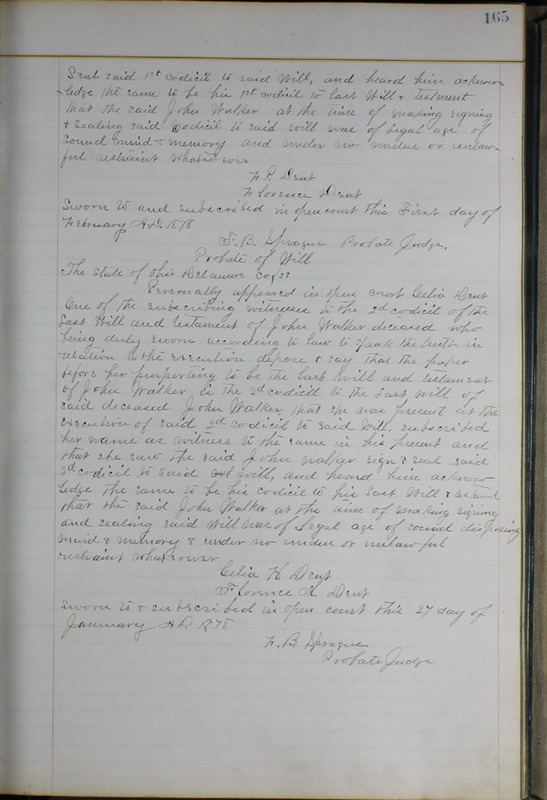 165
Seal said 1st codicil to said Will, and heard him acknow-
ledge the same to be his 1st codicil to last Will & testment
that the said John Walker at the time of making signing
& sealing said Codicil to said will was of Legal age of
Sound mind & memory and under no undue or unlaw-
ful restraint whatsoever
F. P. Dent
Florence Dent
Sworn to and subscribed in open court this First day of
February A.D. 1878
F. B. Sprague Probate Judge,
Probate of Will
The State of Ohio Delaware Co SS
Personally appeared in open court Celia Dent
One of the subscribing witnesses to the 2d codicil of the
Last Will and testament of John Walker deceased who
being duly sworn according to law to speak the truth in
relation to the execution depose & say that the paper
before purporting to be the last will and testament
of John Walker is the 2d codicil to the Last Will of
said deceased John Walker, that she was present at the
execution of said 2d codicil to said Will, subscribed
her name as witness to the same in his present and
that she saw the said John Walker sign & seal said
2d codicil to said will, and heard him acknow
ledge the same to be his codicil to his Last Will &
that the said John Walker at the time of making signing
and sealing said Will was of Legal age of sound disposing
mind & memory & under no undue or unlawful
restraint whatsoever
Celia H Dent
Florence H. Dent
Sworn to & subscribed in open court this 27 day of
January A.D. 1878
F. B. Sprague
Probate Judge